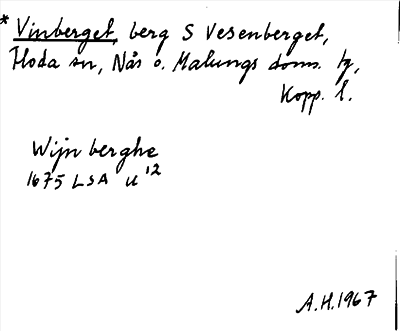 * Vinberget, berg S Vesenberget,
Floda sn, Nås o. Malungs doms. tg,
Kopp. l.
Wijnberghe
1675 LSA U 12
A.H. 1967